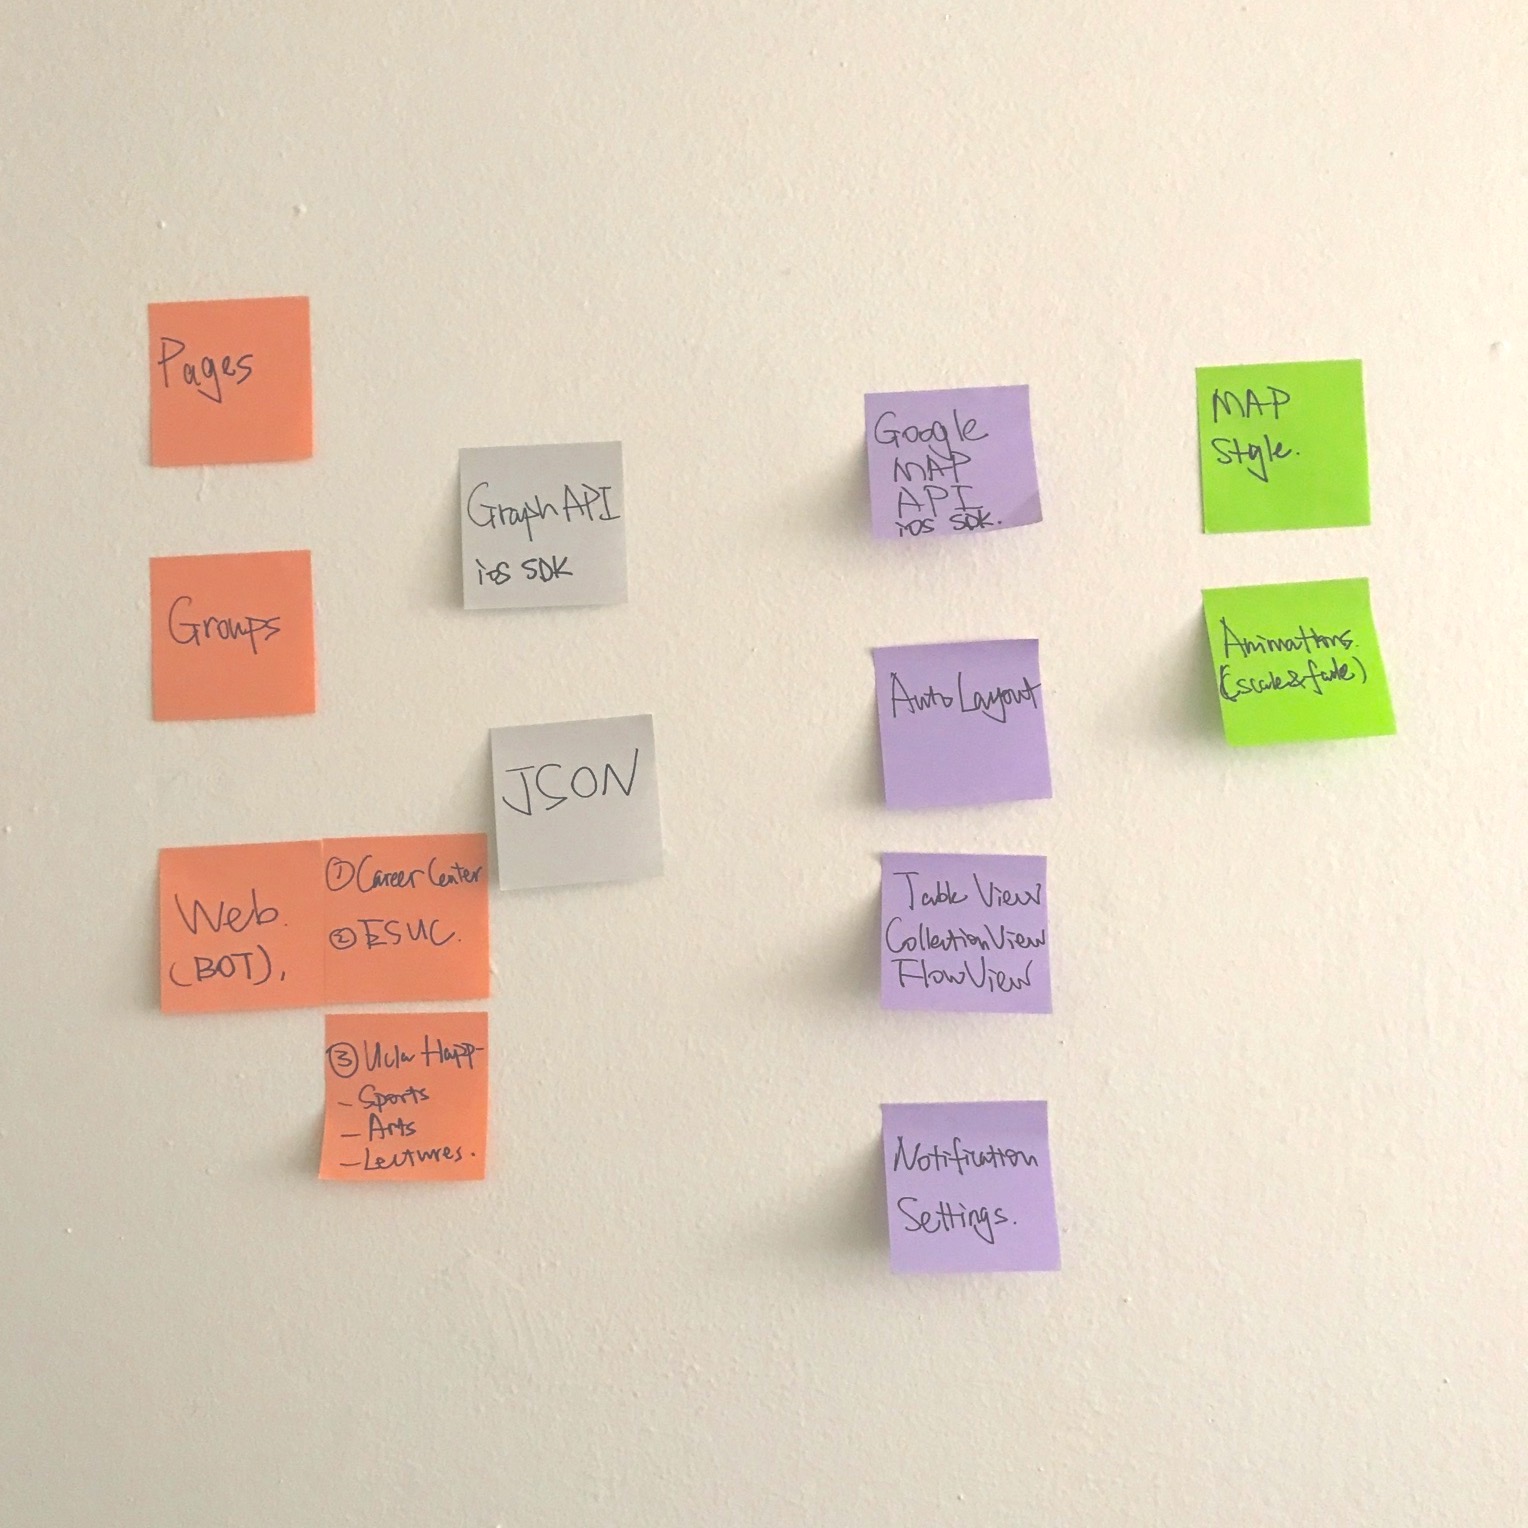 Pages
Groups
Web.
(BOT).
① Career Center
② ESUC.
③ Ucla Happ-
- Sports
- Arts
- Lectures.
Graph API
ios SDK
JSON
Google
MAP
API
ios SDK.
Auto Layout
Table View
Collection View
Flow View
Notification
Settings.
MAP
Style.
Animations.
(scale&fade)